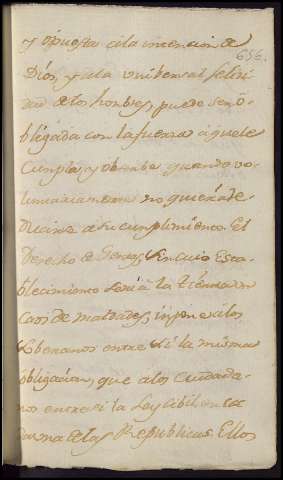 y opuesta a la intencion de
656.
Dios, y a la unibersal felici
dad de los hombres, puede ser o-
bligada con la fuerza a que le
Cumpla, y observe quando vo-
luntariamente no quiera re-
ducirse a su cumplimiento. El
Derecho de Gentes, sin cuio Esta-
blecimiento seria la tierra un
Caos de maldades, impone a los
Soberanos entre si la misma
obligacion, que a los Ciudada-
nos entre si la Ley Cibil en ca
da una de las Republicas. Ellos